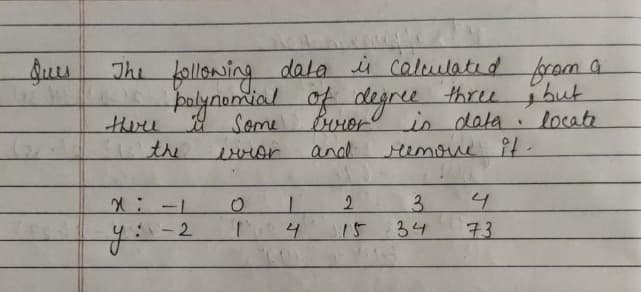 Ques The following data is calculated from a
polynomial of degree three, but
there is some error in data. locate
the error and remove it.
x : -1 0 1 2 3 4
y : -2 1 4 15 34 73